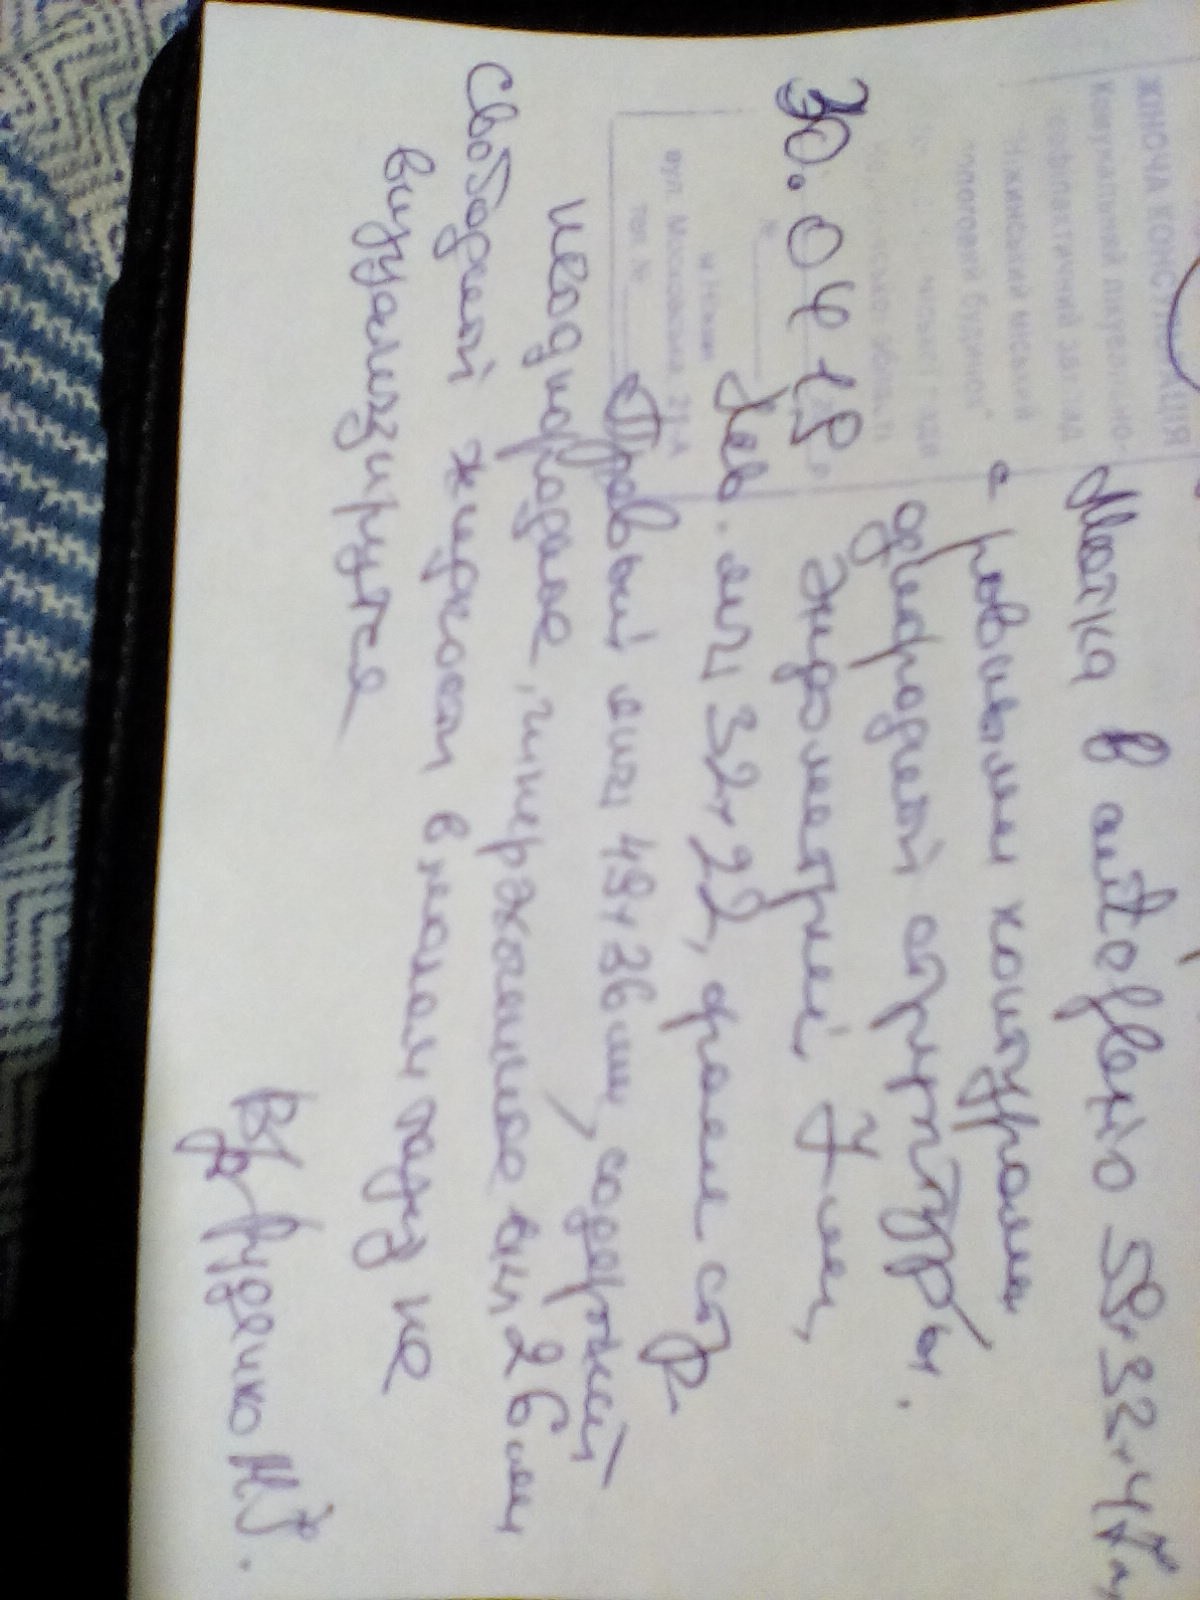 ЖІНОЧА КОНСУЛЬТАЦІЯ
Комунальний лікувально-
профілактичний заклад
"Ніжинський міський
пологовий будинок"
м. Ніжин
вул. Московська, 21-А
тел. №
30.04.18.
Матка в anteflexio 59×33×47
с ровными контурами
однородной структуры.
Эндометрий 7 мм,
Лев. яич 32×22, фолл стр
Правый яич 49×36 мм, содержит
неоднородное, гиперэхогенное вкл, 26 мм
Свободной жидкости в малом тазу не
визуализируется
Вр Руденко